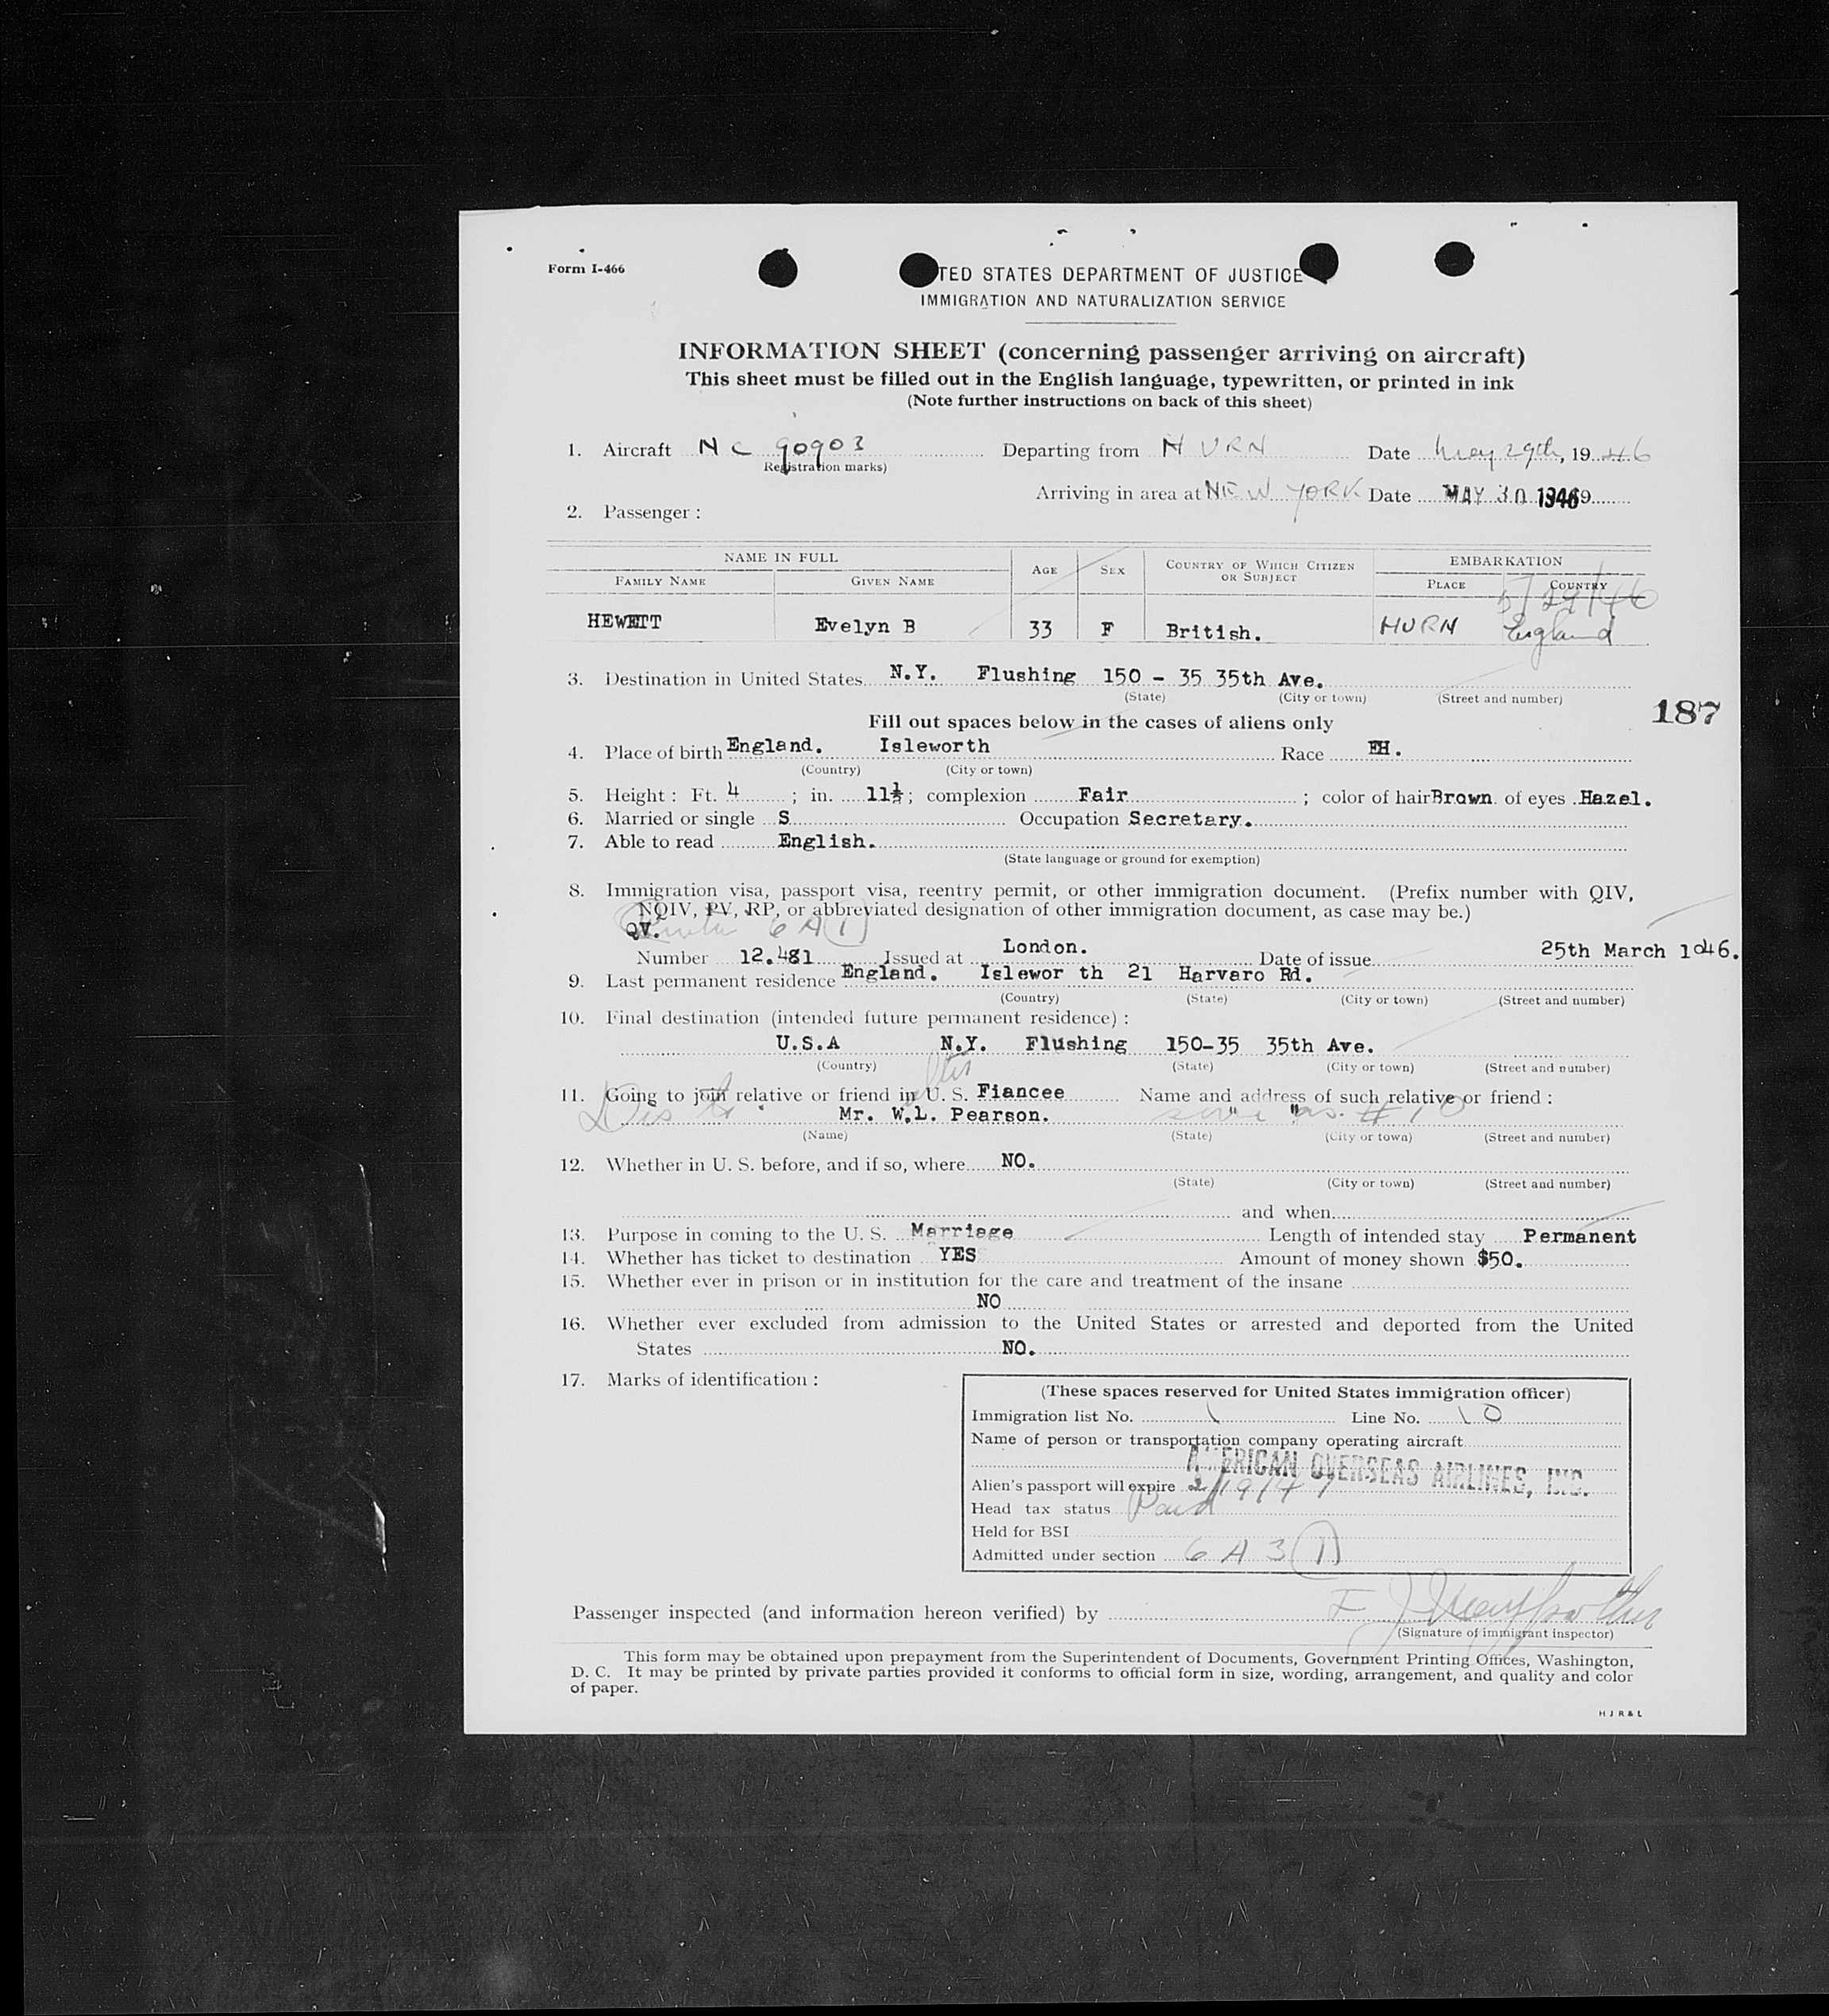 Form I-466
TED STATES DEPARTMENT OF JUSTICE
IMMIGRATION AND NATURALIZATION SERVICE
INFORMATION SHEET (concerning passenger arriving on aircraft)
This sheet must be filled out in the English language, typewritten, or printed in ink
(Note further instructions on back of this sheet)
1. Aircraft NC 90903 Departing from HURN Date May 29th, 1946
Registration marks)
Arriving in area at NEW YORK Date MAY 30 1946 19
2. Passenger:
NAME IN FULL AGE SEX COUNTRY OF WHICH CITIZEN OR SUBJECT EMBARKATION
FAMILY NAME GIVEN NAME PLACE COUNTRY
5/29/46
HEWETT Evelyn B 33 F British. HURN England
3. Destination in United States N.Y. Flushing 150 - 35 35th Ave.
(State) (City or town) (Street and number)
187
Fill out spaces below in the cases of aliens only
4. Place of birth England. Isleworth Race EH.
(Country) (City or town)
5. Height: Ft. 4; in. 11½; complexion Fair; color of hair Brown of eyes Hazel.
6. Married or single S Occupation Secretary.
7. Able to read English.
(State language or ground for exemption)
8. Immigration visa, passport visa, reentry permit, or other immigration document. (Prefix number with QIV,
NQIV, PV, RP, or abbreviated designation of other immigration document, as case may be.)
QV. 6A(1)
Number 12.481 Issued at London. Date of issue 25th March 1946.
9. Last permanent residence England. Islewor th 21 Harvaro Rd.
(Country) (State) (City or town) (Street and number)
10. Final destination (intended future permanent residence):
U.S.A N.Y. Flushing 150-35 35th Ave.
(Country) (State) (City or town) (Street and number)
11. Going to join relative or friend in U. S. Fiancee Name and address of such relative or friend:
Mr. W.L. Pearson. same as # 10
(Name) (State) (City or town) (Street and number)
12. Whether in U. S. before, and if so, where NO.
(State) (City or town) (Street and number)
and when
13. Purpose in coming to the U. S. Marriage Length of intended stay Permanent
14. Whether has ticket to destination YES Amount of money shown $50.
15. Whether ever in prison or in institution for the care and treatment of the insane
NO
16. Whether ever excluded from admission to the United States or arrested and deported from the United
States NO.
17. Marks of identification:
(These spaces reserved for United States immigration officer)
Immigration list No. 1 Line No. 10
Name of person or transportation company operating aircraft
AMERICAN OVERSEAS AIRLINES, INC.
Alien's passport will expire
Head tax status Paid
Held for BSI
Admitted under section 6A3(1)
Passenger inspected (and information hereon verified) by
(Signature of immigrant inspector)
This form may be obtained upon prepayment from the Superintendent of Documents, Government Printing Offices, Washington,
D. C. It may be printed by private parties provided it conforms to official form in size, wording, arrangement, and quality and color
of paper.
H J R & L